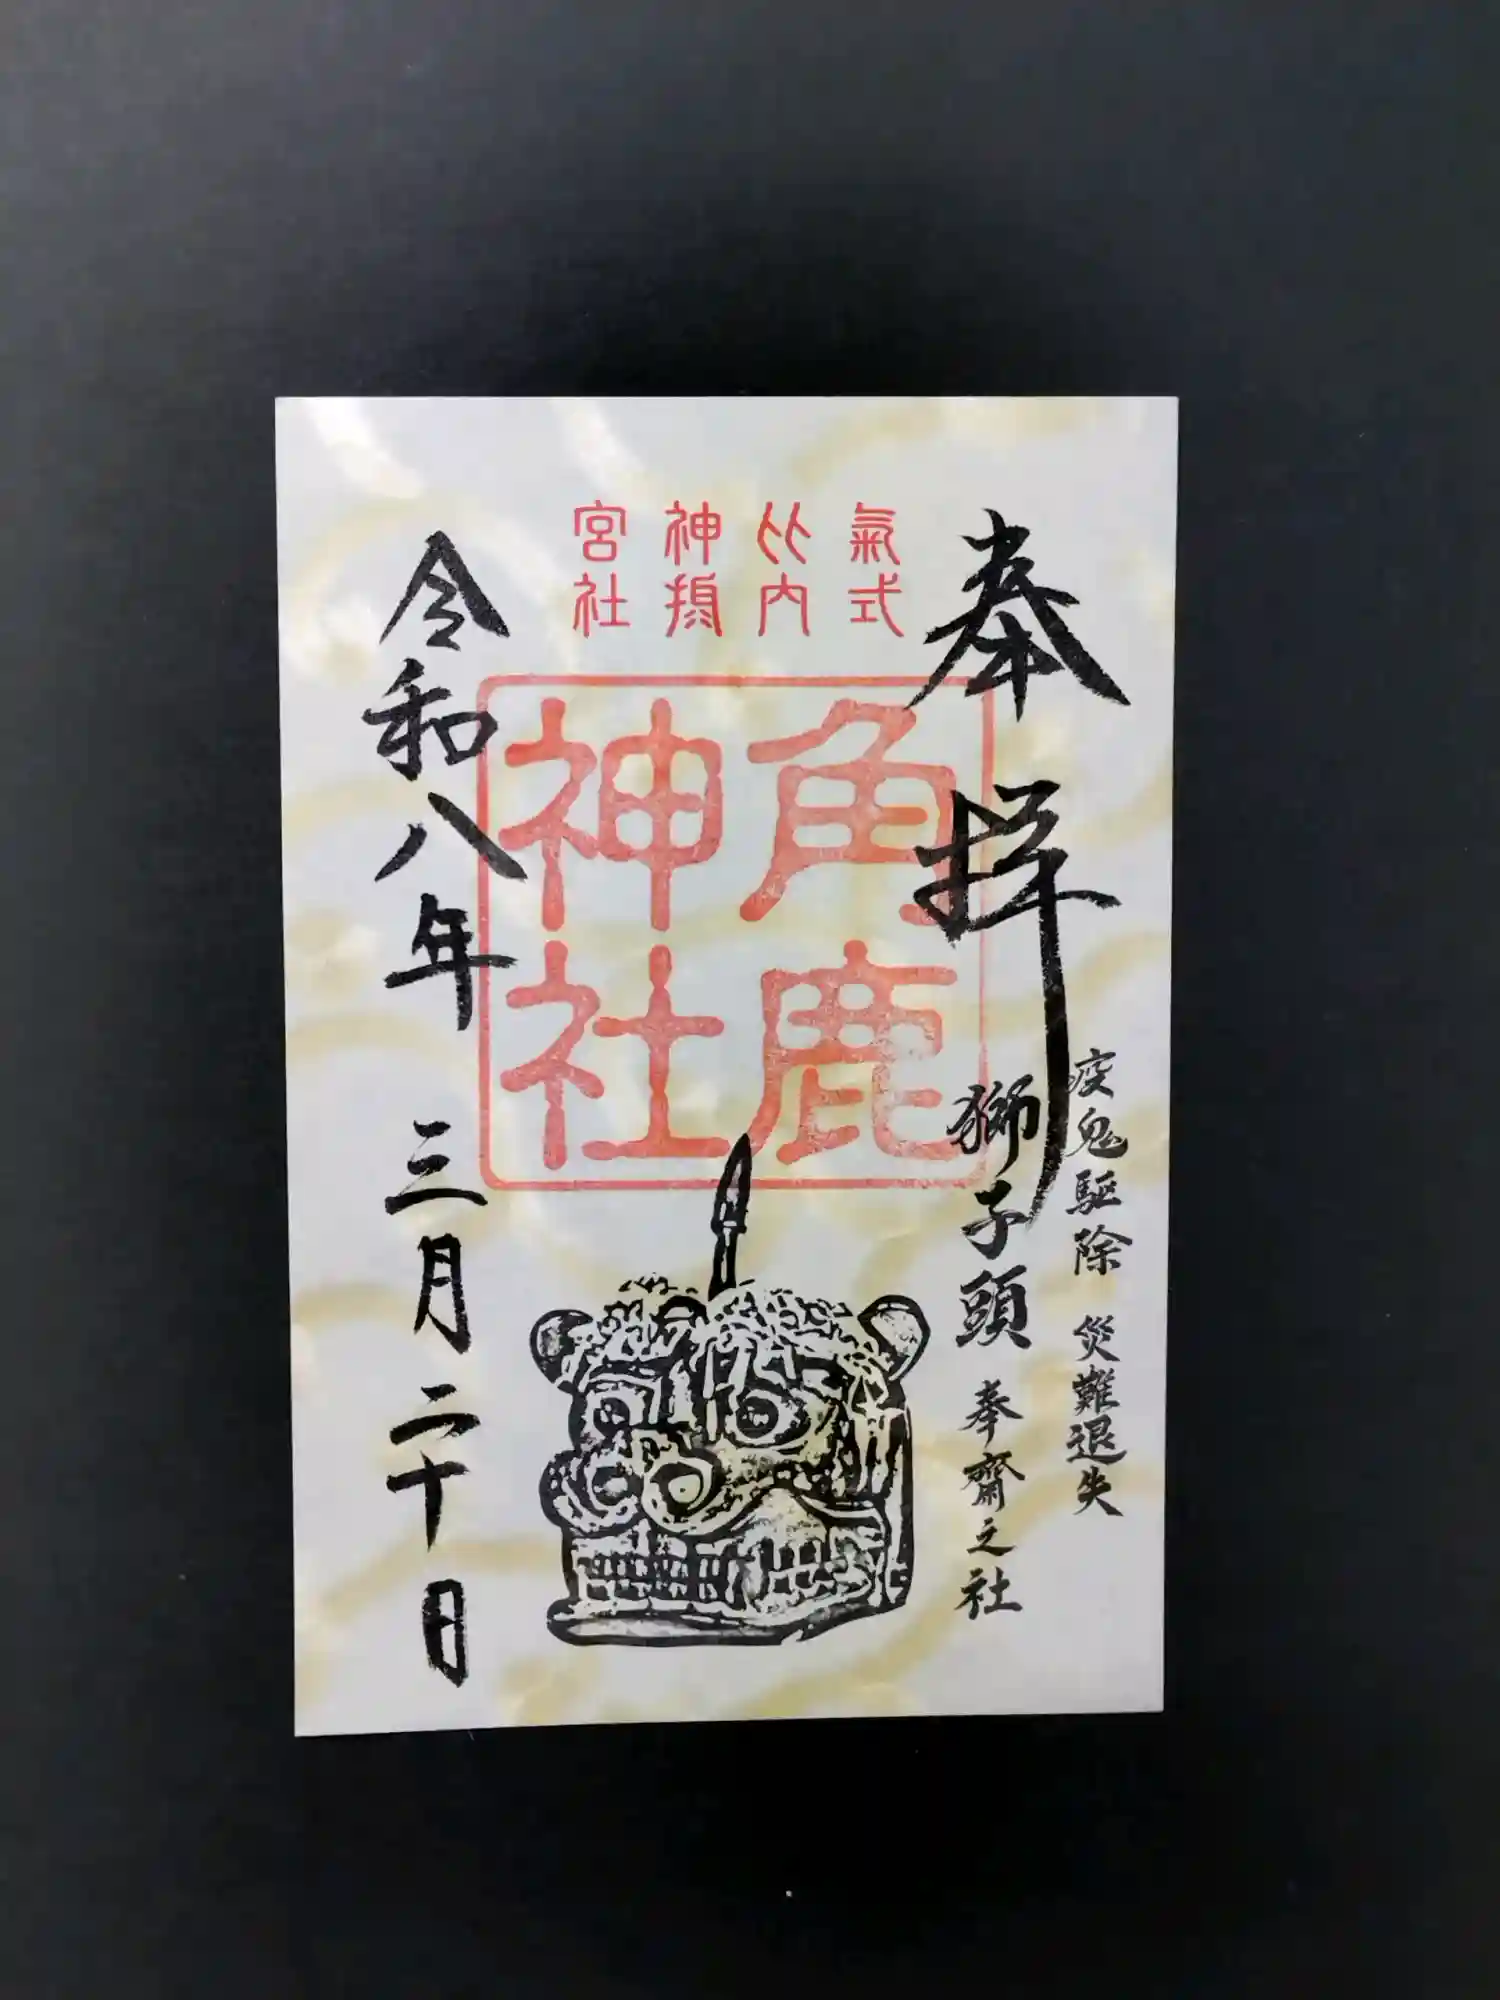 奉拝
疫鬼駆除 災難退失
獅子頭 奉齋之社
式内
氣比神宮
摂社
角鹿神社
令和八年 三月二十日